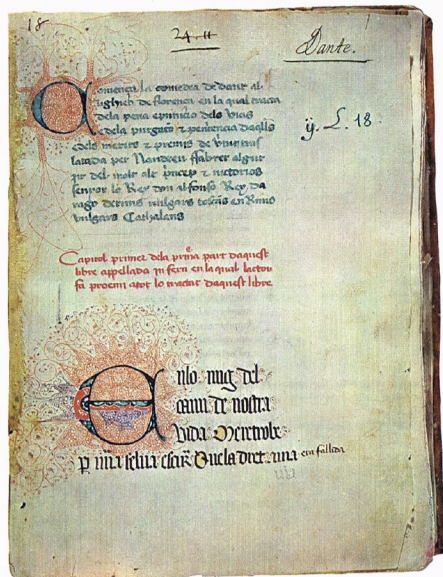 18
24. 11
Dante.
ÿ. L. 18
Comença la comedia de dant al
de florença en la qual tracta
dela pena e punicio dels vicis
e dela purga e penitencia daqlls
e dels merits e premis de virtut tras
latada per Nandreu ffabrer algut
zir del molt alt princep e victorios
senyor lo Rey don alfonso Rey da
rago de rims vulgars toscans en Rims
vulgars Cathalans
Capitol primer dela prima part daquest
libre appellada infern en la qual lactor
fa proemi a tot lo tractat daquest libre
En lo mig del
cami de nostra
vida Me retrobe
p una selva escura Que la dreta via era fallida